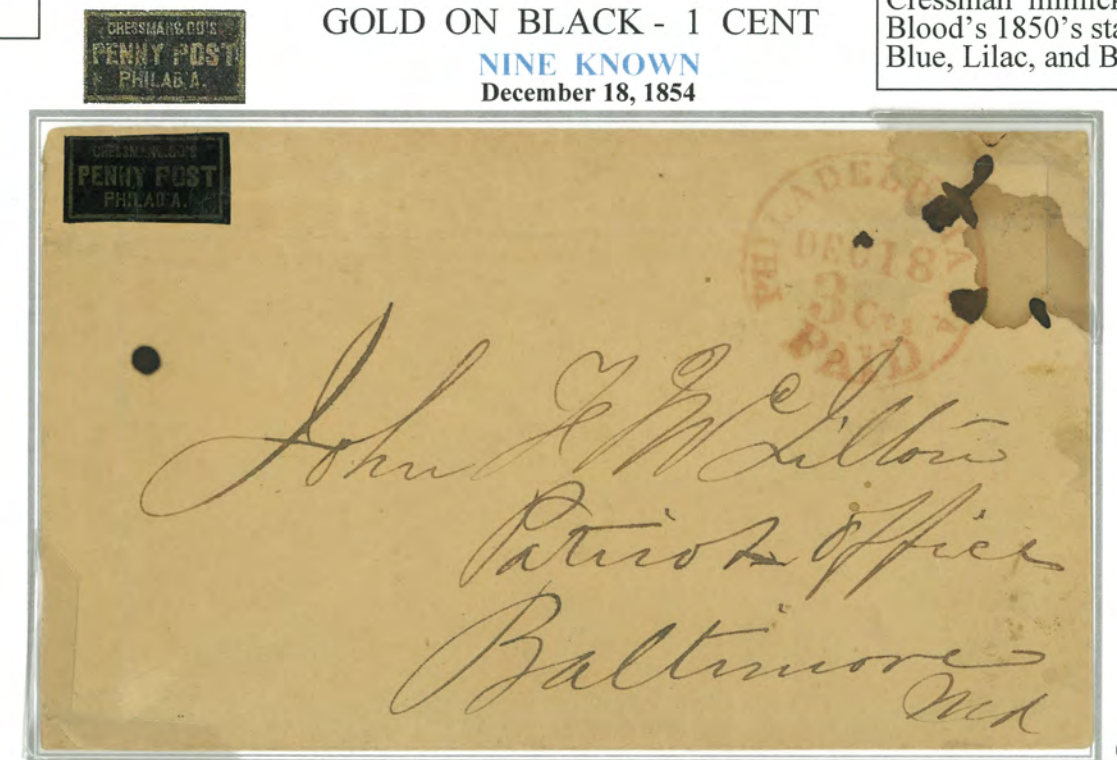 CRESSMAN & CO'S
PENNY POST
PHILAD'A.
GOLD ON BLACK - 1 CENT
NINE KNOWN
December 18, 1854
Cressman mimick
Blood's 1850's sta
Blue, Lilac, and B
CRESSMAN & CO'S
PENNY POST
PHILAD'A.
PHILADELPHIA
DEC 18
3 Cts
PAID
John F McJilton
Patriot Office
Baltimore
Md